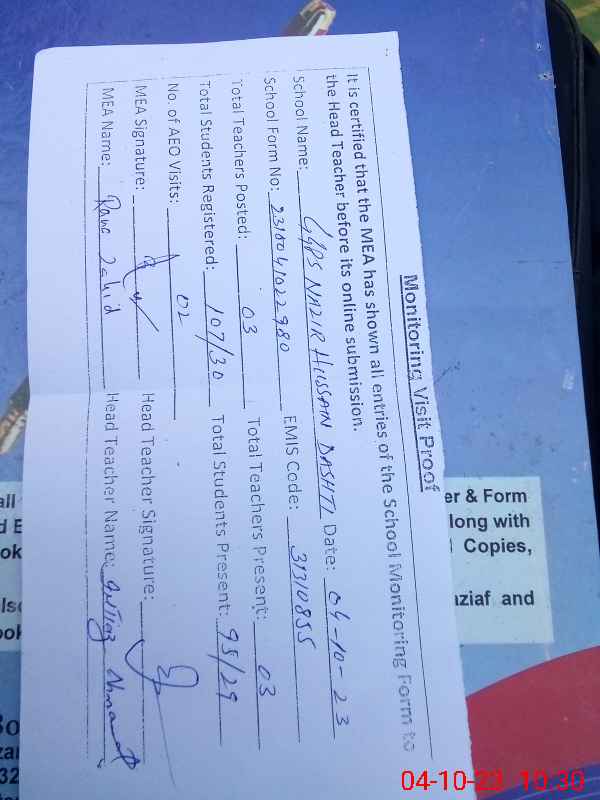 Monitoring Visit Proof
It is certified that the MEA has shown all entries of the School Monitoring Form to
the Head Teacher before its online submission.
School Name: GGPS NAZIR HUSSAIN DASHTI Date: 04-10-23
School Form No: 2310041022980 EMIS Code: 31310855
Total Teachers Posted: 03 Total Teachers Present: 03
Total Students Registered: 107/30 Total Students Present: 95/29
No. of AEO Visits: 02
MEA Signature: Head Teacher Signature:
MEA Name: Rana Zahid Head Teacher Name: Imtiaz Ahmad
er & Form
long with
Copies,
aziaf and
all
d E
ook
lso
ook
32
04-10-23 10:30